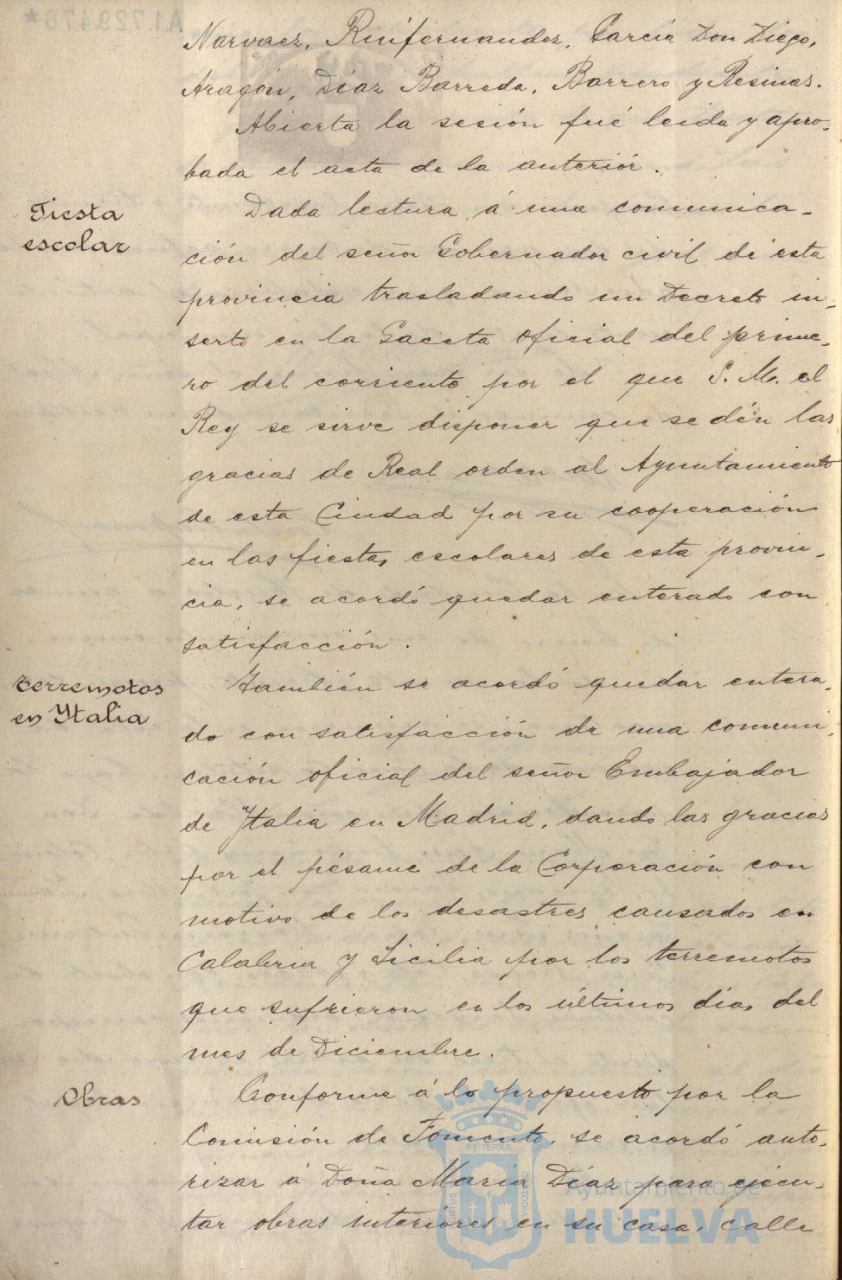 A1.729.470*
Narvaez, Ruifernandez, García Don Diego,
Aragón, Díaz Barreda, Barrero y Resinas.
Abierta la sesión fué leida y apro-
bada el acta de la anteriór.
Fiesta
escolar
Dada lectura á una comunica-
ción del señor Gobernador civil de esta
provincia trasladando un Decreto in-
serto en la Gaceta oficial del prime-
ro del corriente por el que S. M. el
Rey se sirve disponer que se dén las
gracias de Real orden al Ayuntamiento
de esta Ciudad por su cooperación
en las fiestas escolares de esta provin-
cia, se acordó quedar enterado con
satisfacción.
Terremotos
en Ytalia
También se acordó quedar entera-
do con satisfacción de una comuni-
cación oficial del señor Embajador
de Ytalia en Madrid, dando las gracias
por el pésame de la Corporación con
motivo de los desastres causados en
Calabria y Sicilia por los terremotos
que sufrieron en los últimos días del
mes de Diciembre.
Obras
Conforme á lo propuesto por la
Comisión de Fomento, se acordó auto-
rizar á Doña María Díaz para ejecu-
tar obras interióres en su casa, calle
Ayuntamiento de
HUELVA